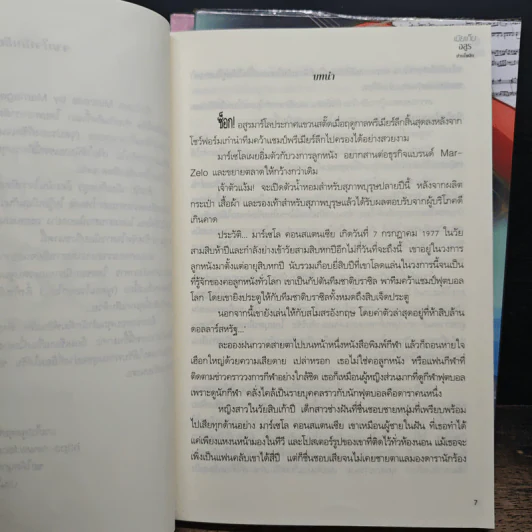 เมียเก็บ
อสูร
บทนำ
ช็อก! อสูรมาร์โลประกาศแขวนสตั๊ดเมื่อฤดูกาลพรีเมียร์ลีกสิ้นสุดลงหลังจาก
โชว์ฟอร์มเก่านำทีมคว้าแชมป์พรีเมียร์ลีกไปครองได้อย่างสวยงาม
มาร์เซโลเผยอิ่มตัวกับวงการลูกหนัง อยากสานต่อธุรกิจแบรนด์ Mar-
Zelo และขยายตลาดให้กว้างกว่าเดิม
เจ้าตัวแง้ม! จะเปิดตัวน้ำหอมสำหรับสุภาพบุรุษปลายปีนี้ หลังจากผลิต
กระเป๋า เสื้อผ้า และรองเท้าสำหรับสุภาพบุรุษแล้วได้รับผลตอบรับจากผู้บริโภคดี
เกินคาด
ประวัติ... มาร์เซโล คอนสแตนเซีย เกิดวันที่ 7 กรกฎาคม 1977 ในวัย
สามสิบห้าปีและกำลังย่างเข้าวัยสามสิบหกปีอีกไม่กี่วันที่จะถึงนี้ เขาอยู่ในวงการ
ลูกหนังมาตั้งแต่อายุสิบหกปี นับรวมเกือบยี่สิบปีที่เขาโลดแล่นในวงการนี้จนเป็น
ที่รู้จักของคอลูกหนังทั่วโลก เขาเป็นกัปตันทีมชาติบราซิล พาทีมคว้าแชมป์ฟุตบอล
โลก โดยเขายิงประตูให้กับทีมชาติบราซิลทั้งหมดถึงสิบเจ็ดประตู
นอกจากนี้เขายังเล่นให้กับสโมสรอังกฤษ โดยค่าตัวล่าสุดอยู่ที่ห้าสิบล้าน
ดอลลาร์สหรัฐ...'
ละอองฝนกวาดสายตาไปบนหน้าหนึ่งหนังสือพิมพ์กีฬา แล้วก็ถอนหายใจ
เฮือกใหญ่ด้วยความเสียดาย เปล่าหรอก เธอไม่ใช่คอลูกหนัง หรือแฟนกีฬาที่
ติดตามข่าวคราววงการกีฬาอย่างใกล้ชิด เธอก็เหมือนผู้หญิงส่วนมากที่ดูกีฬาฟุตบอล
เพราะดูนักกีฬา คลั่งไคล้เป็นรายบุคคลราวกับนักฟุตบอลคือดาราคนหนึ่ง
หญิงสาวในวัยสิบเก้าปี เด็กสาวช่างฝันที่ชื่นชอบชายหนุ่มที่เพรียบพร้อม
ไปเสียทุกด้านอย่าง มาร์เซโล คอนสแตนเซีย เขาเหมือนผู้ชายในฝัน ที่เธอทำได้
แค่เพียงแหงนหน้ามองในทีวี และโปสเตอร์รูปของเขาที่ติดไว้ทั่วห้องนอน แม้เธอจะ
เพิ่งเป็นแฟนคลับเขาได้สี่ปี แต่ก็ชื่นชอบเสียจนไม่เคยชายตาแลมองดารานักร้อง
7